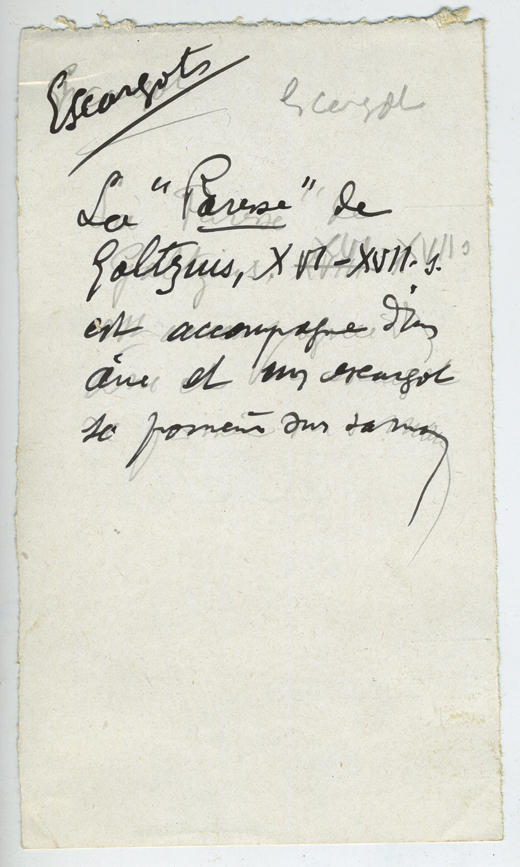 Escargots
Escargot
La "Paresse" de
Goltzius, XVI-XVII. s.
est accompagné d'un
âne et un escargot
se promène sur sa main